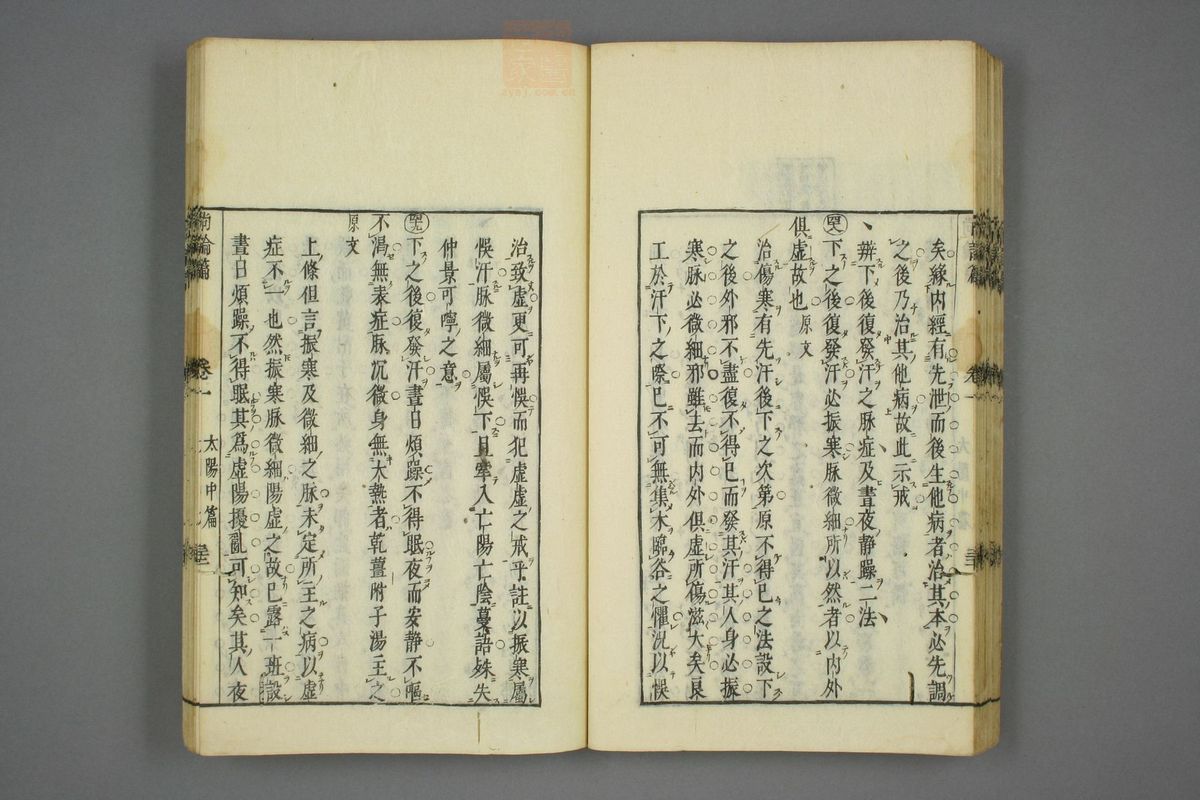 矣緣內經有先泄而後生他病者治其本必先調
之後乃治其他病故此示戒
辨下後復發汗之脉症及晝夜静躁二法
下之後復發汗必振寒脉微細所以然者以內外
俱虚故也原文
治傷寒有先汗後下之次第原不得已之法設下
之後外邪不盡復不得已而發其汗其人身必振
寒脉必微細邪雖去而內外俱虚所傷滋大矣良
工於汗下之際已不可無集木臨谷之懼况以悞
治致虚更可再悞而犯虚虚之戒乎註以振寒屬
悞汗脉微細屬悞下且牽入亡陽亡陰蔓語殊失
仲景叮嚀之意
下之後復發汗晝日煩躁不得眠夜而安静不嘔
不渴無表症脉沉微身無大熱者乾薑附子湯主之
原文
上條但言振寒及微細之脉未定所主之病以虚
症不一也然振寒脉微細陽虚之故已露一班設
晝日煩躁不得眠其為虚陽擾亂可知矣其人夜
尚論篇 卷一 太陽中篇